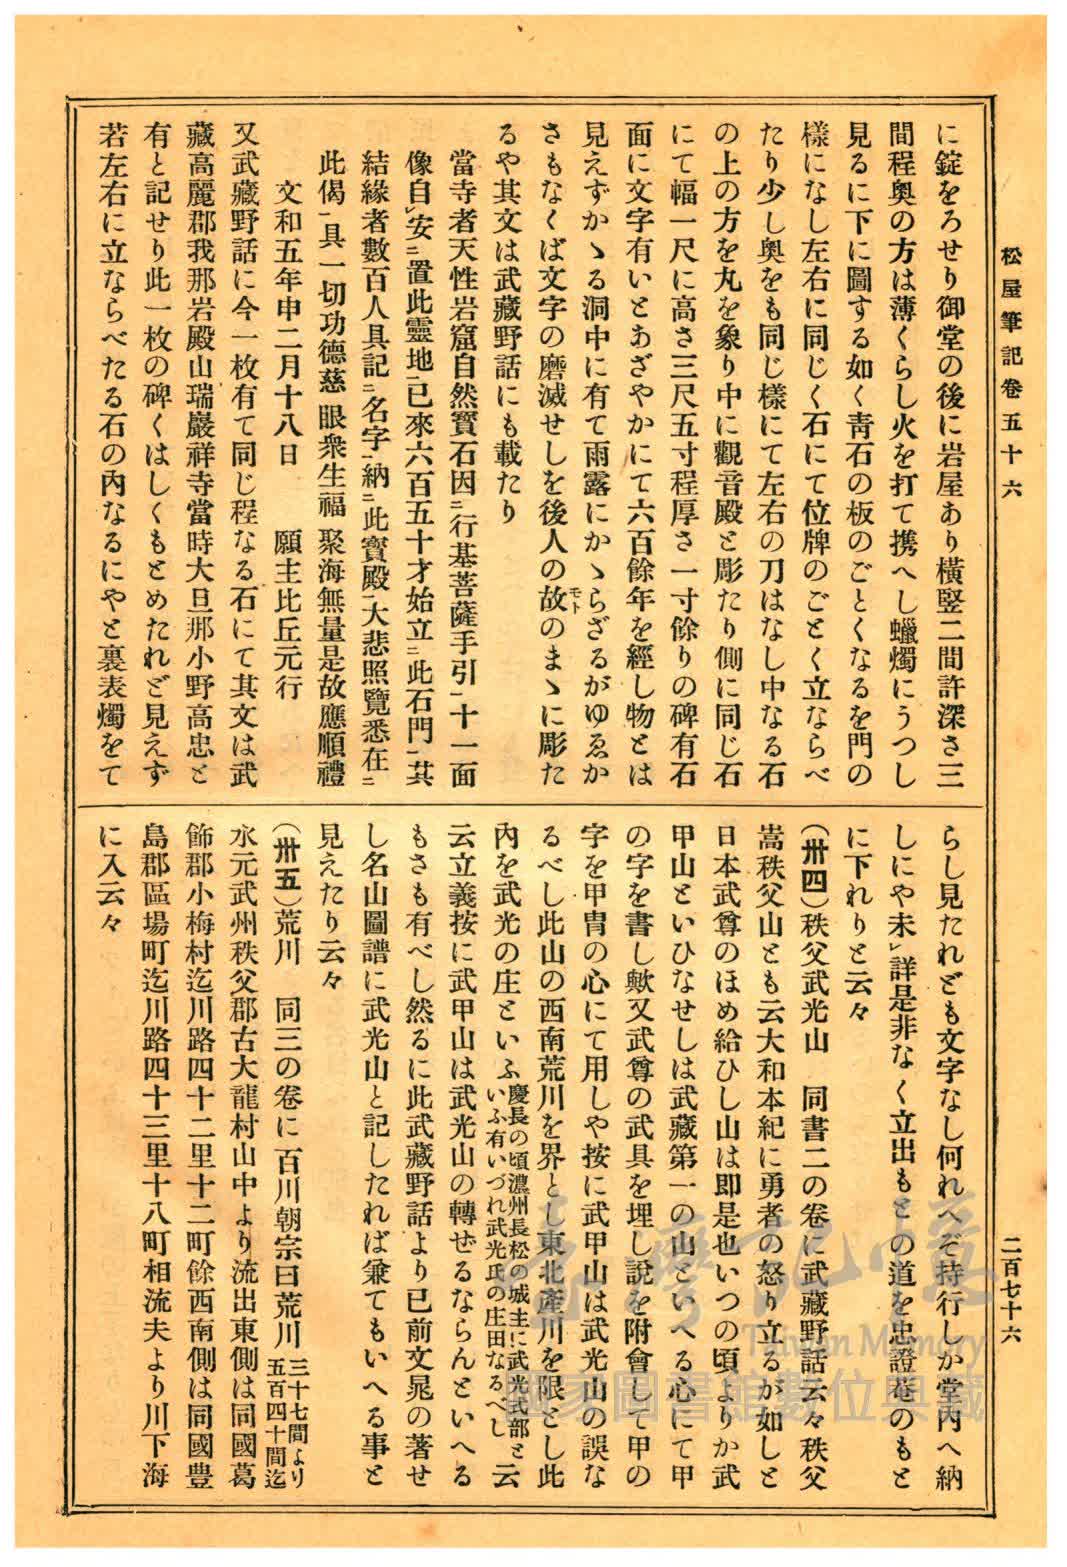 松屋筆記卷五十六
二百七十六
に錠をろせり御堂の後に岩屋あり橫竪二間許深さ三
間程奧の方は薄くらし火を打て携へし蠟燭にうつし
見るに下に圖する如く靑石の板のごとくなるを門の
樣になし左右に同じく石にて位牌のごとく立ならべ
たり少し奧をも同じ樣にて左右の刀はなし中なる石
の上の方を丸を象り中に觀音殿と彫たり側に同じ石
にて幅一尺に高さ三尺五寸程厚さ一寸餘りの碑有石
面に文字有いとあざやかにて六百餘年を經し物とは
見えずかゝる洞中に有て雨露にかゝらざるがゆゑか
さもなくば文字の磨滅せしを後人の故モトのまゝに彫た
るや其文は武藏野話にも載たり
當寺者天性岩窟自然寶石因ニ行基菩薩手引一十一面
像自レ安ニ置此靈地一已來六百五十才始立ニ此石門一其
結緣者數百人具記ニ名字一納ニ此寶殿一大悲照覽悉在ニ
此偈一具一切功德慈 眼衆生福 聚海無量是故應頂禮
文和五年申二月十八日 願主比丘元行
又武藏野話に今一枚有て同じ程なる石にて其文は武
藏高麗郡我那岩殿山瑞巖祥寺當時大旦那小野高忠と
有と記せり此一枚の碑くはしくもとめたれど見えず
若左右に立ならべたる石の內なるにやと裏表燭をて
らし見たれども文字なし何れへぞ持行しか堂內へ納
しにや未レ詳是非なく立出もとの道を忠證菴のもと
に下れりと云々
（卅四）秩父武光山 同書二の卷に武藏野話云々秩父
嵩秩父山とも云大和本紀に勇者の怒り立るが如しと
日本武尊のほめ給ひし山は即是也いつの頃よりか武
甲山といひなせしは武藏第一の山といへる心にて甲
の字を書し歟又武尊の武具を埋し說を附會して甲の
字を甲冑の心にて用しや按に武甲山は武光山の誤な
るべし此山の西南荒川を界とし東北產川を限とし此
內を武光の庄といふ慶長の頃濃州長松の城主に武光式部と云
いふ有いづれ武光氏の庄田なるべし
云立義按に武甲山は武光山の轉せるならんといへる
もさも有べし然るに此武藏野話より已前文晁の著せ
し名山圖譜に武光山と記したれば兼てもいへる事と
見えたり云々
（卅五）荒川 同三の卷に百川朝宗曰荒川三十七間より
五百四十間迄
水元武州秩父郡古大龍村山中より流出東側は同國葛
飾郡小梅村迄川路四十二里十二町餘西南側は同國豊
島郡區場町迄川路四十三里十八町相流夫より川下海
に入云々
臺灣記憶
Taiwan Memory
國家圖書館數位典藏